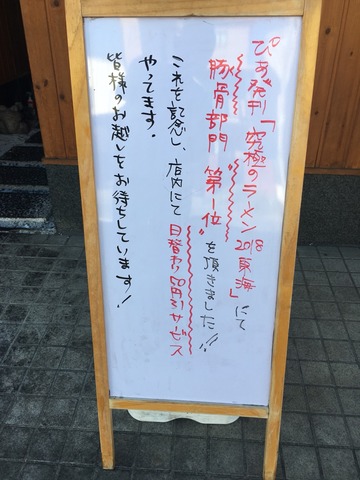 ぴあ発刊「究極のラーメン2018東海」にて
豚骨部門 第1位"を頂きました!!
これを記念し、店内にて日替わり50円引サービス
やってます。
皆様のお越しをお待ちしています!